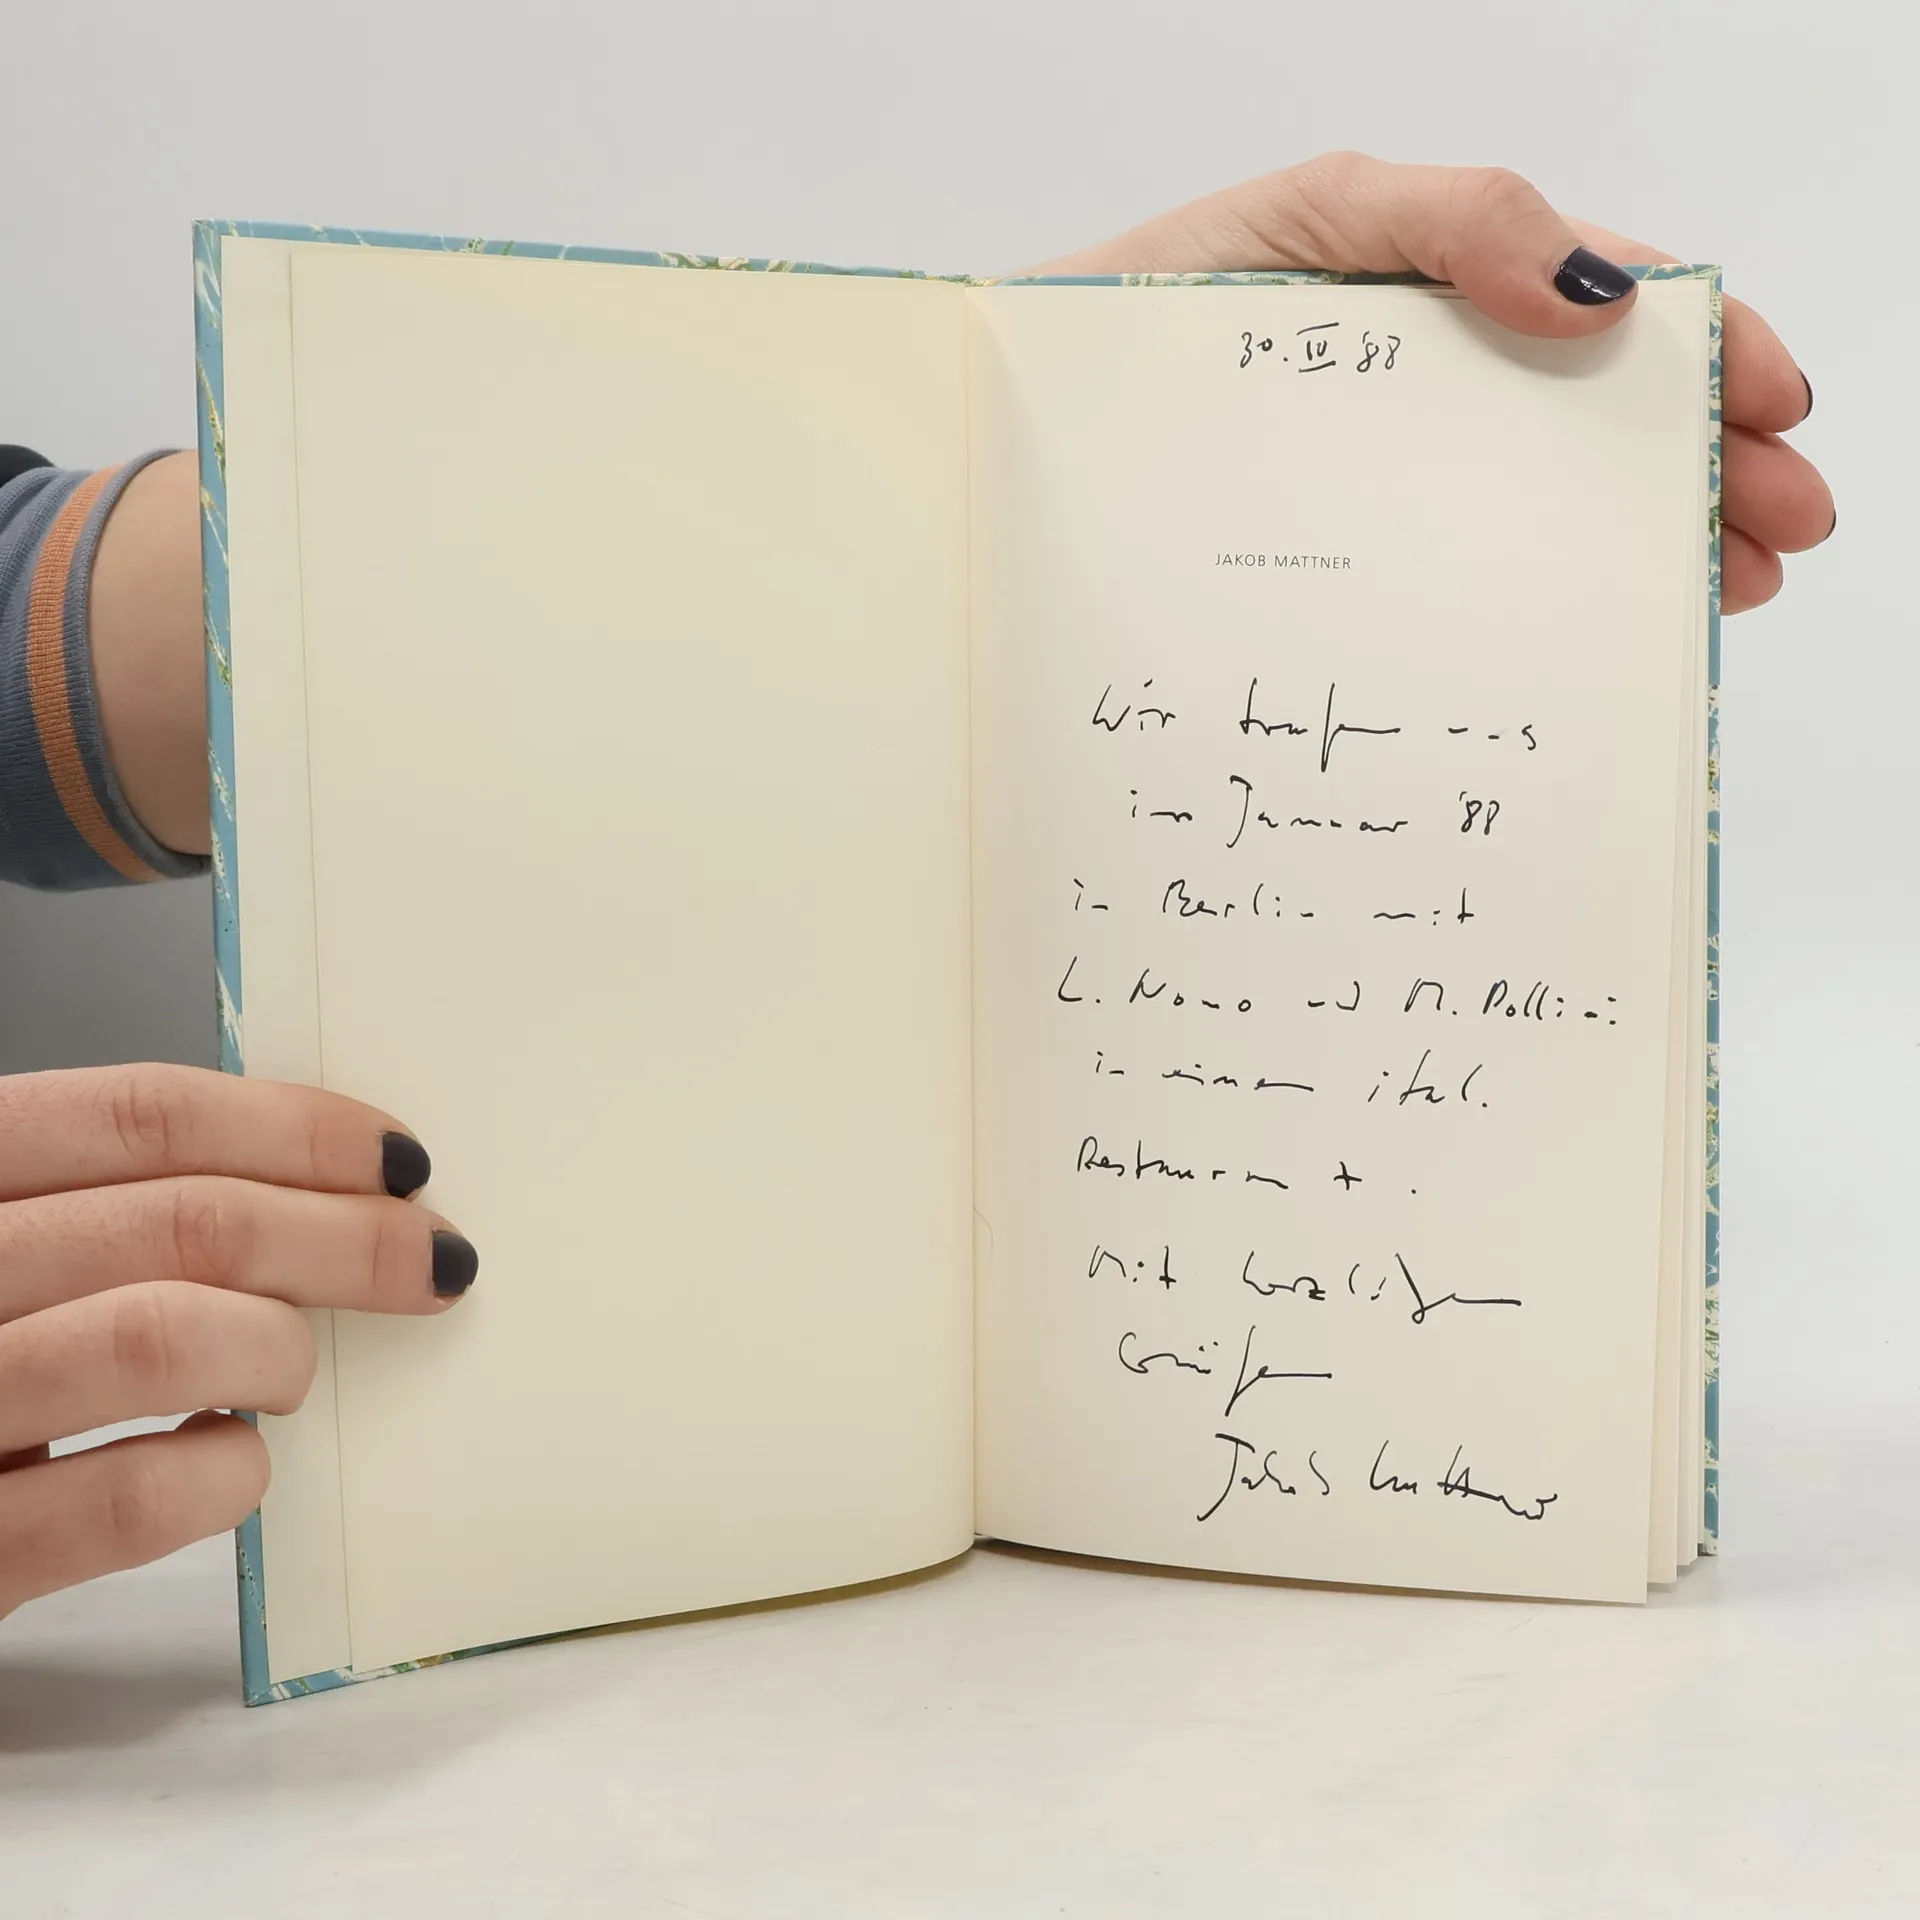 30. IV '88
JAKOB MATTNER
Wir trafen uns
im Januar '88
in Berlin mit
L. Nono und M. Pollini
in einem ital.
Restaurant.
Mit herzlichen
Grüßen
Jakob Mattner